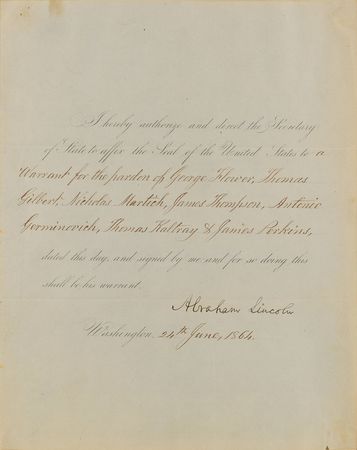 I hereby authorize and direct the Secretary
of State to affix the Seal of the United States to a
Warrant for the pardon of George Flower, Thomas
Gilbert, Nicholas Martich, James Thompson, Antonio
Germinovich, Thomas Kaltray & James Perkins,
dated this day, and signed by me and for so doing this
shall be his warrant.
Abraham Lincoln
Washington, 24th June, 1864.